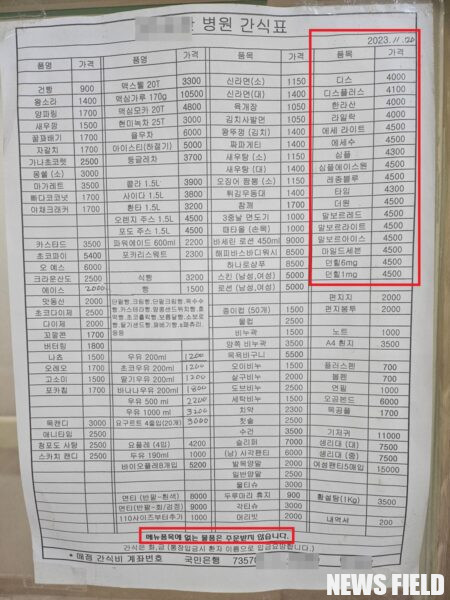 병원 간식표
2023. 11. 20
품명 가격 품명 가격 품목 가격 품목 가격
맥스웰 20T 3300 신라면(소) 1150 디스 4000
건빵 900 맥심가루 170g 10500 신라면(대) 1400 디스플러스 4100
왕소라 1400 맥심모카 20T 4800 육개장 1050 한라산 4000
양파링 1700 현미녹차 25T 3000 김치사발면 1050 라일락 4000
새우깡 1500 율무차 6000 왕뚜껑 (김치) 1400 에쎄 라이트 4500
꿀꽈배기 1700 아이스티(하절기) 5000 짜파게티 1400 에쎄수 4500
자갈치 1700 둥굴레차 3700 새우탕 (소) 1150 심플 4300
가나초코렛 2500 새우탕 (대) 1400 심플에이스원 4500
몽쉘 (소) 3000 콜라 1.5L 3900 오징어 짬뽕 (소) 1150 레종블루 4500
마가레트 3500 사이다 1.5L 3800 튀김우동대 1400 타임 4300
빠다코코넛 1700 환타 1.5L 3200 참깨 1700 더원 4500
야채크래커 1700 오렌지 주스 1.5L 4500 3중날 면도기 1000 말보로레드 4500
포도 주스 1.5L 4500 때타올 (손목) 1000 말보르라이트 4500
카스타드 3500 파워에이드 600ml 2200 바세린 로션 450ml 9000 말보르아이스 4500
초코파이 5400 포카리스웨트 2300 해피바스바디워시 8500 마일드세븐 4500
오 예스 6000 하나로샴푸 8500 던힐6mg 4500
크라운산도 2500 식빵 3200 스킨 (남성,여성) 5000 던힐1mg 4500
에이스 2000 빵 1500 로션 (남성,여성) 5000
멋동산 2000 종이컵 (50개) 1500 편지지 2000
초코다이제 2500 물컵 2500 편지봉투 2000
다이제 2000 비누곽 1500
꼬깔콘 1700 양쪽 비누곽 3500 노트 1000
버터링 1800 목욕바구니 5500 A4 흰지 3500
나쵸 1500 우유 200ml 1200 오이비누 1500
오레오 1700 초코우유 200ml 1200 살구비누 2000 플러스펜 700
고소미 1500 딸기우유 200ml 1200 도브비누 2500 볼펜 700
포카칩 1700 바나나우유 200ml 1800 연필 1000
우유 500 ml 2200 세탁비누 1500 모금본드 6000
우유 1000 ml 3200 치약 2300 목공풀 1700
목캔디 3000 요구르트 4줄입(20개) 3000 칫솔 2500
애니타임 2500 수건 3500 기저귀 11000
청포도 사탕 2500 요플레 (4입) 4200 슬리퍼 7000 생리대 (대) 7500
스카치 캔디 2500 두유 190ml 1000 (남) 사각팬티 6000 생리대 (중) 7500
바이오플레8개입 5200 발목양말 2000 여성팬티5매입 15000
일반양말 2500
물티슈 3000
면티 (반팔-흰색) 8000 두루마리 휴지 900 황설탕(1Kg) 3500
면티(반팔-회/검정) 9000 각티슈 3000
110사이즈부터추가 1000 머리빗 2000 내역서 200
메뉴품목에 없는 물품은 주문받지 않습니다.
간식은 화,금 (통장입금시 환자 이름으로 입금요망합니다.)
* 매점 간식비 계좌번호 국민은행 73570
NEWS FIELD